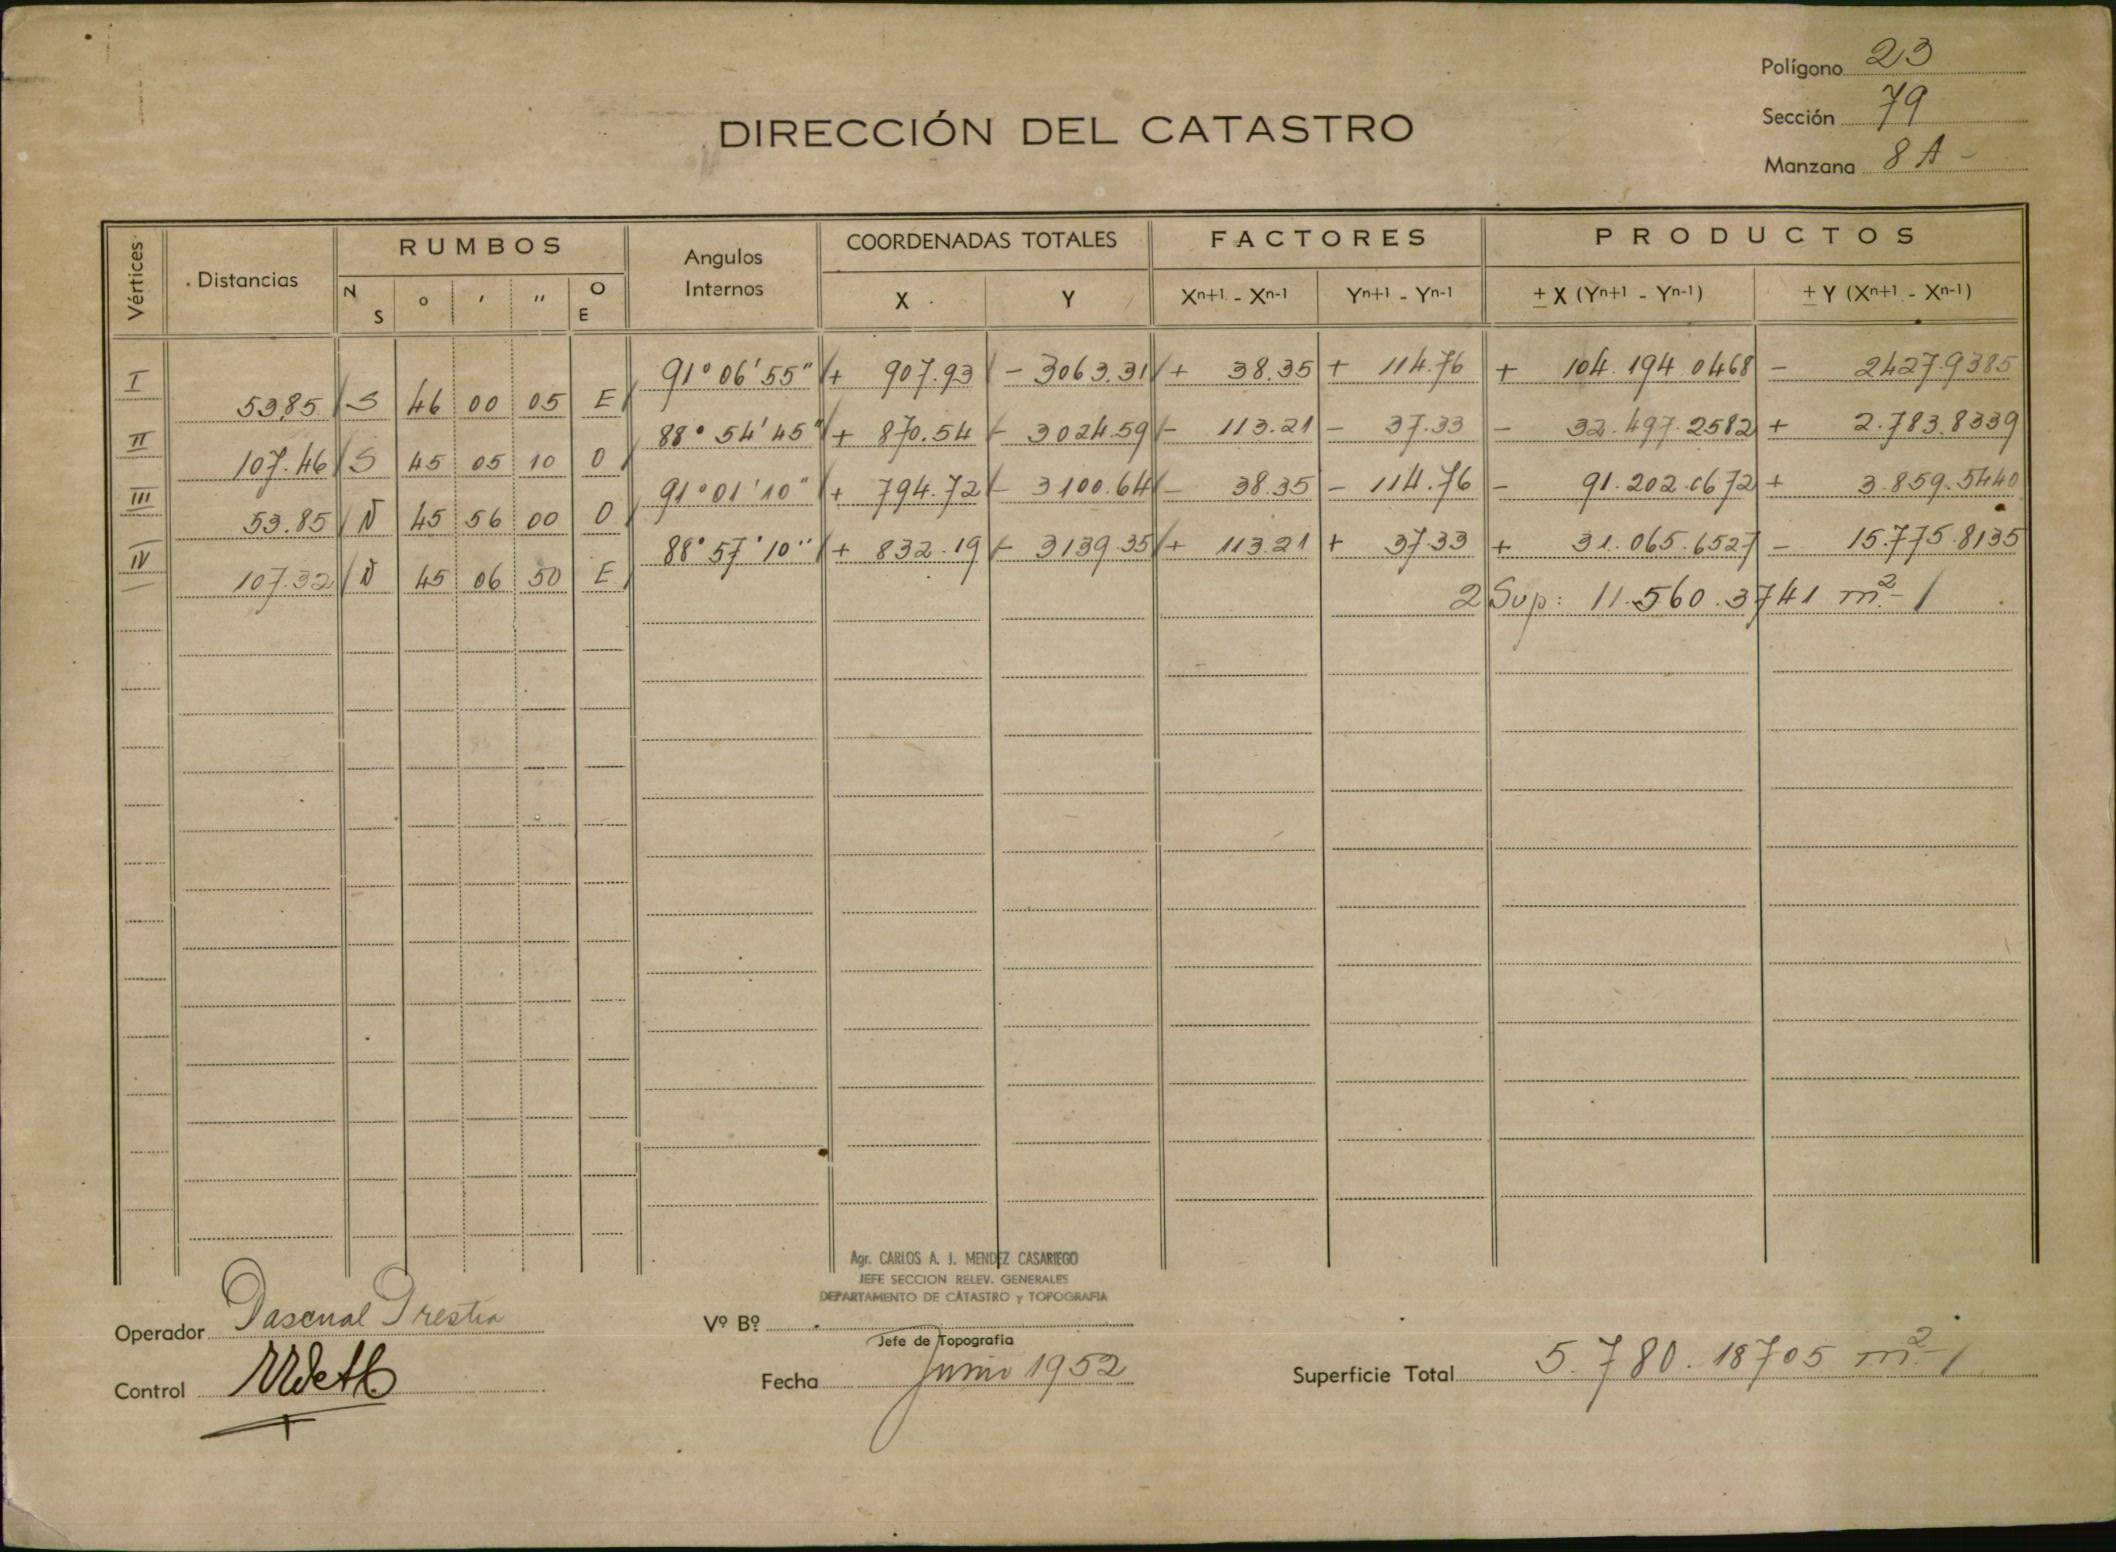 Polígono 23
Sección 79
Manzana 8 A -
DIRECCIÓN DEL CATASTRO
Vértices Distancias RUMBOS Angulos Internos COORDENADAS TOTALES FACTORES PRODUCTOS
N S o ' " O E X Y Xn+1 - Xn-1 Yn+1 - Yn-1 ± X (Yn+1 - Yn-1) ± Y (Xn+1 - Xn-1)
I 91° 06' 55" + 907.93 - 3063.31 + 38.35 + 114.76 + 104.194.0468 - 2427.9385
53.85 S 46 00 05 E
II 88° 54' 45" + 870.54 - 3024.59 - 113.21 - 37.33 - 32.497.2582 + 2.783.8339
107.46 S 45 05 10 O
III 91° 01' 10" + 794.72 - 3100.64 - 38.35 - 114.76 - 91.202.0672 + 3.859.5440
53.85 N 45 56 00 O
IV 88° 57' 10" + 832.19 - 3139.35 + 113.21 + 37.33 + 31.065.6527 - 15.775.8135
107.32 N 45 06 50 E
2 Sup: 11.560.3741 m2.-/
Agr. CARLOS A. J. MENDEZ CASARIEGO
JEFE SECCION RELEV. GENERALES
DEPARTAMENTO DE CATASTRO y TOPOGRAFIA
Operador Pascual Prestia
Vº Bº
Jefe de Topografía
Control
Fecha Junio 1952
Superficie Total 5.780.18705 m2.-/